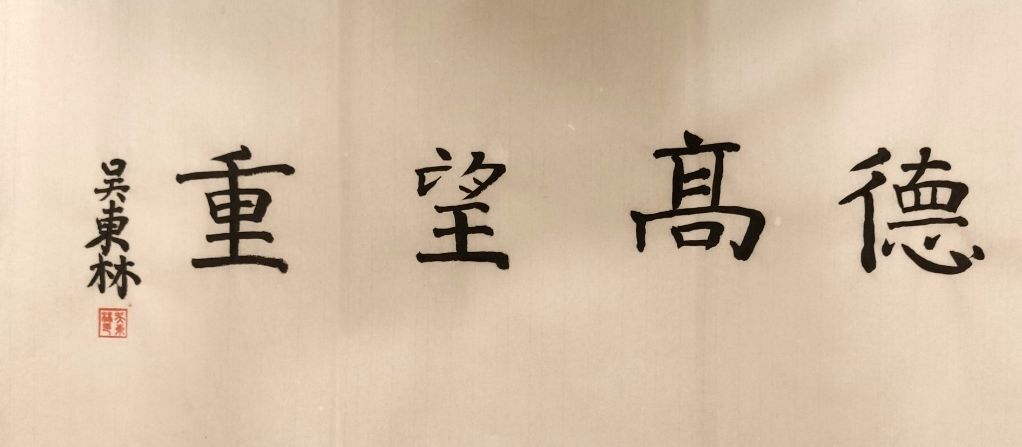 德髙望重
吴東林